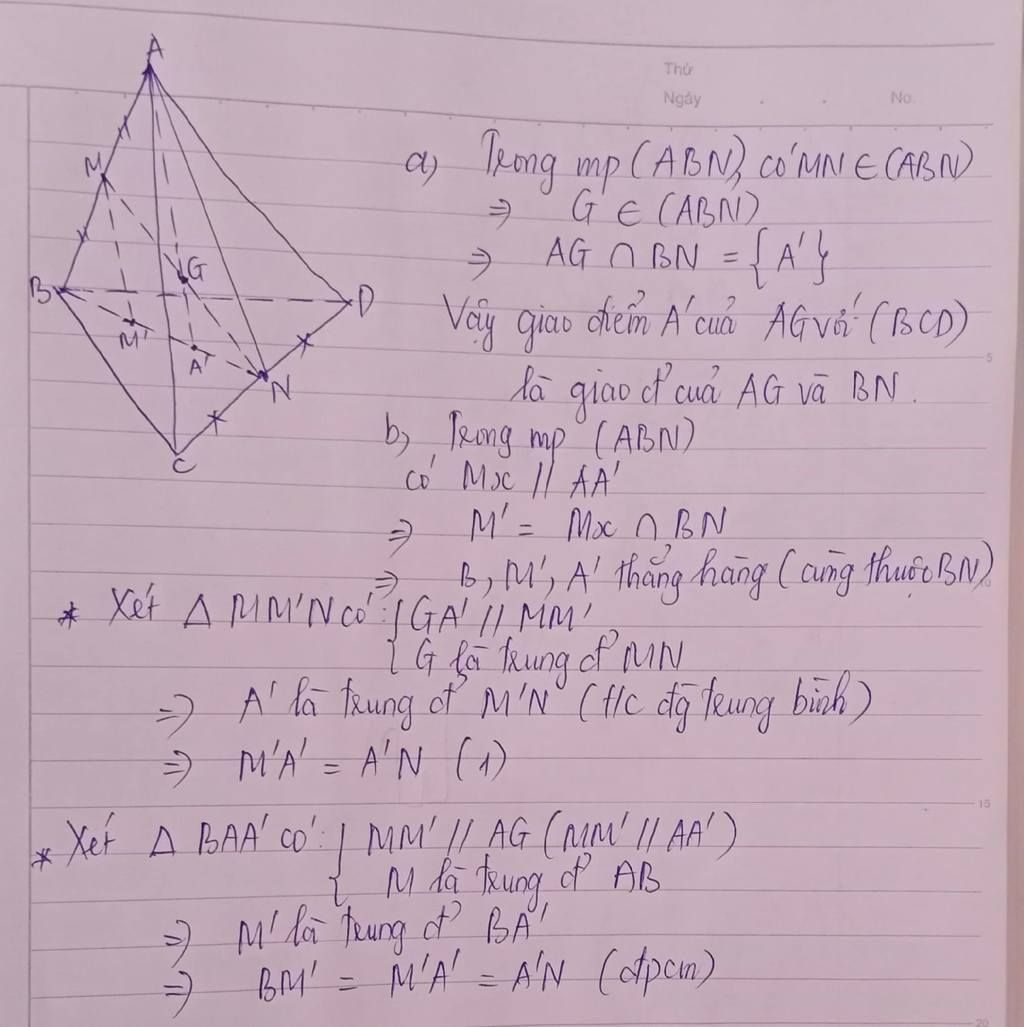 Thứ
Ngày . . No.
A
M
G
B
D
M'
A'
N
C
a, Trong mp (ABN), có MN ∈ (ABN)
⇒ G ∈ (ABN)
⇒ AG ∩ BN = {A'}
Vậy giao điểm A' của AG với (BCD)
là giao đ' của AG và BN.
b, Trong mp (ABN)
có Mx // AA'
⇒ M' = Mx ∩ BN
⇒ B, M', A' thẳng hàng (cùng thuộc BN)
* Xét Δ MM'N có: { GA' // MM'
{ G là trung đ' MN
⇒ A' là trung đ' M'N (t/c đg trung bình)
⇒ M'A' = A'N (1)
* Xét Δ BAA' có: { MM' // AG (MM' // AA')
{ M là trung đ' AB
⇒ M' là trung đ' BA'
⇒ BM' = M'A' = A'N (đpcm)
5
15
20